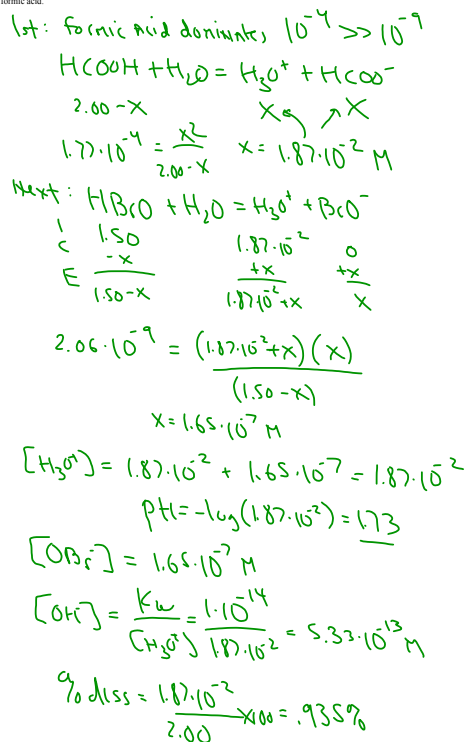 formic acid.
1st: formic acid dominates, 10⁻⁴ >> 10⁻⁹
HCOOH + H₂O = H₃O⁺ + HCOO⁻
2.00-x x x
1.77·10⁻⁴ = x²/(2.00-x) x = 1.87·10⁻² M
Next: HBrO + H₂O = H₃O⁺ + BrO⁻
I 1.50 1.87·10⁻² 0
C -x +x +x
E 1.50-x 1.87·10⁻²+x x
2.06·10⁻⁹ = (1.87·10⁻²+x)(x)/(1.50-x)
x = 1.65·10⁻⁷ M
[H₃O⁺] = 1.87·10⁻² + 1.65·10⁻⁷ = 1.87·10⁻²
pH = -log(1.87·10⁻²) = 1.73
[OBr⁻] = 1.65·10⁻⁷ M
[OH⁻] = Kw/[H₃O⁺] = 1·10⁻¹⁴/1.87·10⁻² = 5.33·10⁻¹³ M
% diss = 1.87·10⁻²/2.00 x100 = .935%